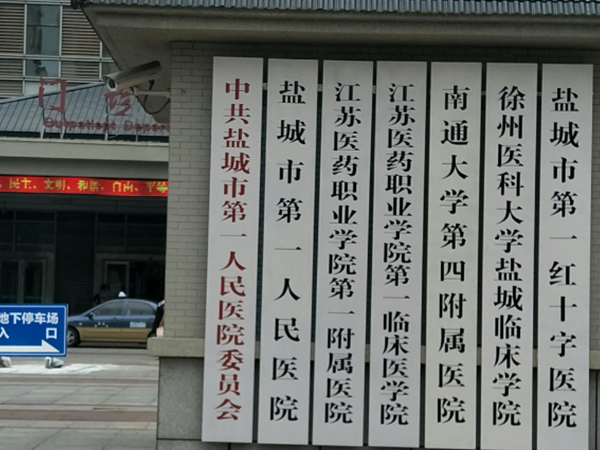 门诊
Outpatient Depart
民主、文明、和谐、自由、平等
地下停车场
入口
中共盐城市第一人民医院委员会
盐城市第一人民医院
江苏医药职业学院第一附属医院
江苏医药职业学院第一临床医学院
南通大学第四附属医院
徐州医科大学盐城临床学院
盐城市第一红十字医院